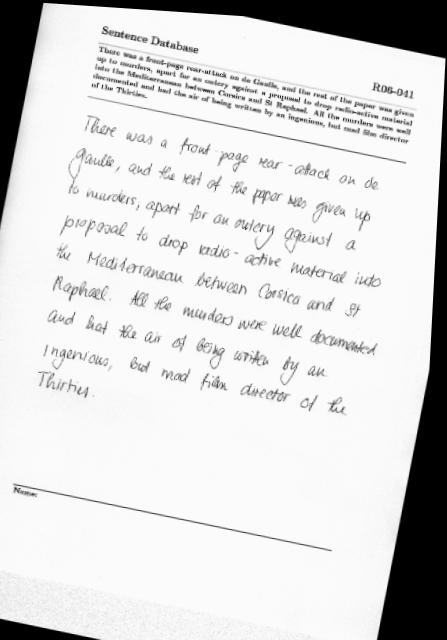 Sentence Database
R06-041
There was a front-page rear-attack on de Gaulle, and the rest of the paper was given
up to murders, apart for an outcry against a proposal to drop radio-active material
into the Mediterranean between Corsica and St Raphael. All the murders were well
documented and had the air of being written by an ingenious, but mad film director
of the Thirties.
There was a front-page rear-attack on de
Gaulle, and the rest of the paper was given up
to murders, apart for an outcry against a
proposal to drop radio-active material into
the Mediterranean between Corsica and St
Raphael. All the murders were well documented
and hat the air of being written by an
Ingenious, but mad film director of the
Thirties.
Name: